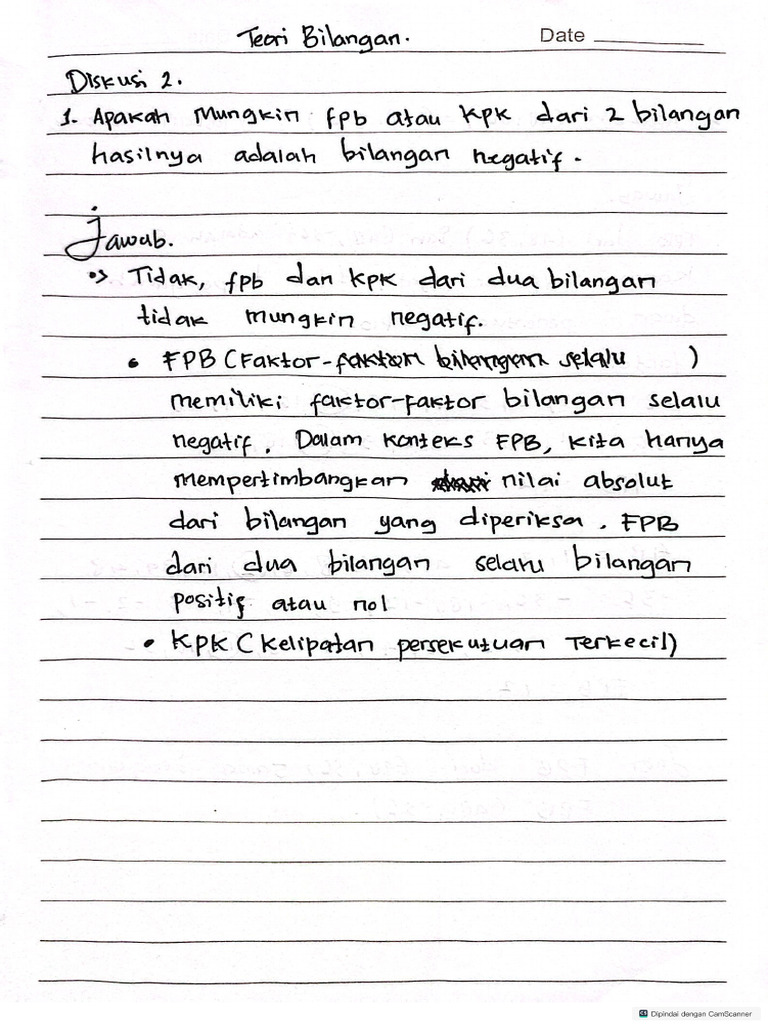 Teori Bilangan.
Date
Diskusi 2.
1. Apakah mungkin fpb atau kpk dari 2 bilangan
hasilnya adalah bilangan negatif.
Jawab.
Tidak, fpb dan kpk dari dua bilangan
tidak mungkin negatif.
• FPB (Faktor-faktor bilangan selalu )
memiliki faktor-faktor bilangan selalu
negatif. Dalam konteks FPB, kita hanya
mempertimbangkan nilai absolut
dari bilangan yang diperiksa. FPB
dari dua bilangan selalu bilangan
positif atau nol
• KPK (Kelipatan persekutuan Terkecil)
Dipindai dengan CamScanner